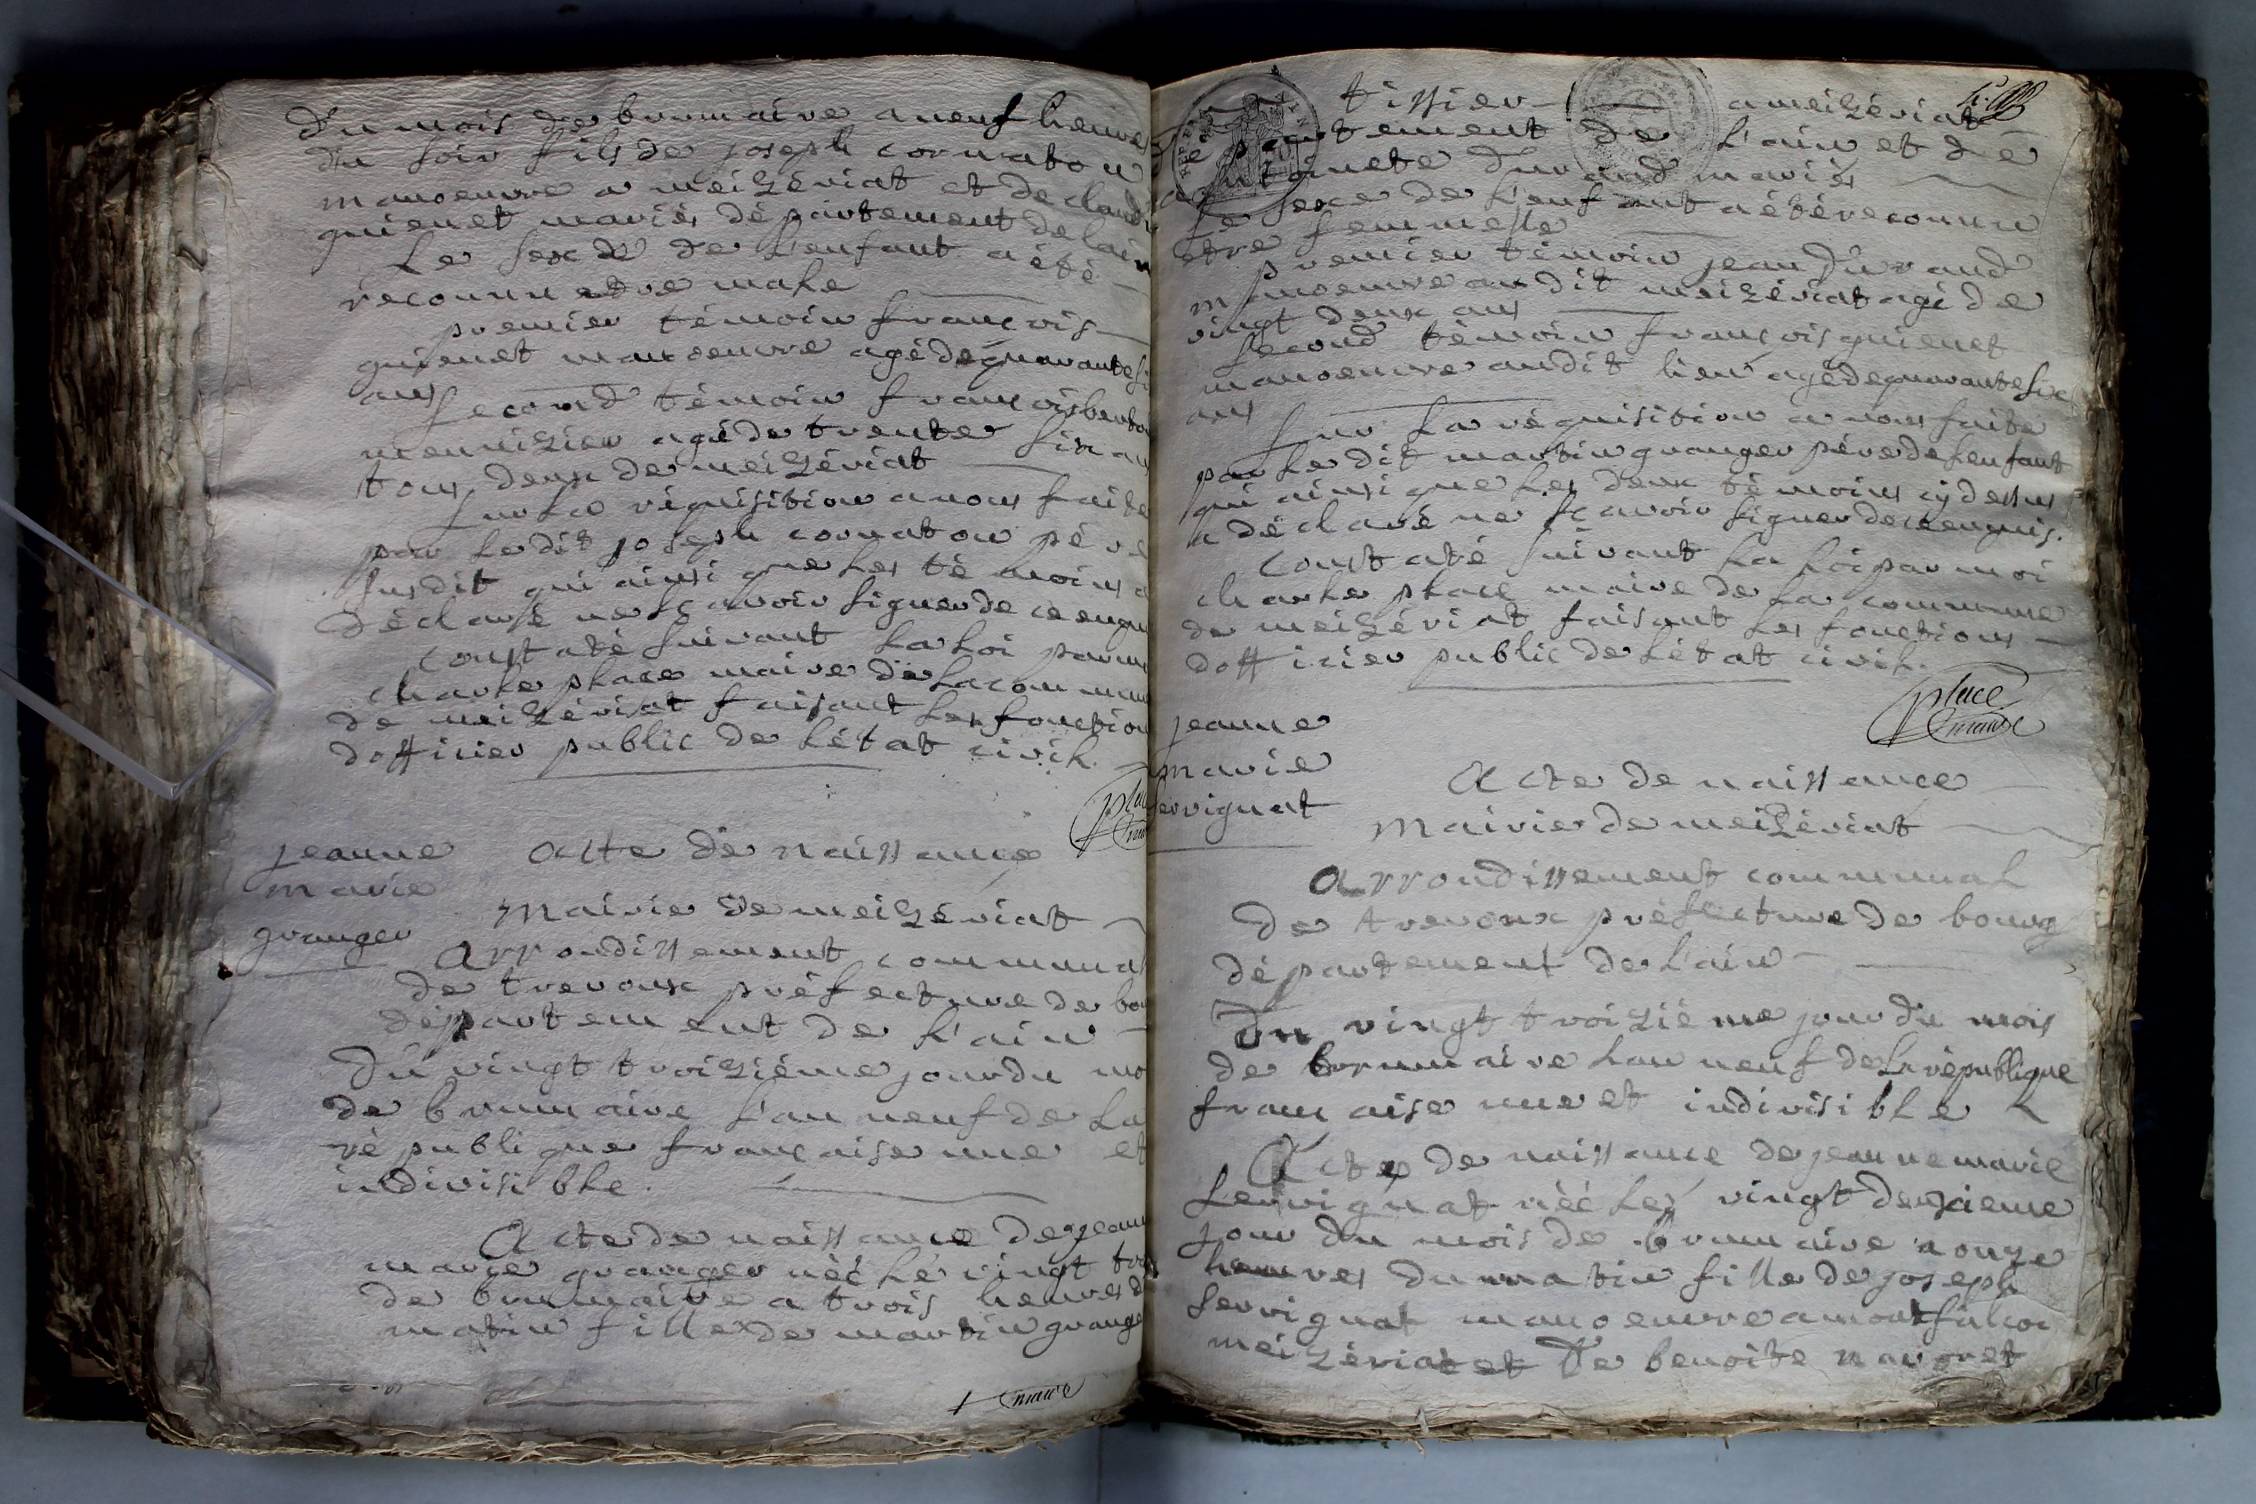 du mois de brumaire a neuf heures
du soir fils de joseph cornaton
manoeuvre a meizériat et de claud
guienet mariés département de lain
Le sexe de L'enfant a été
réconnu etre male
premier témoin françois
guienet manoeuvre agé de quarante si
ans
Second témoin françois berto
menuizier agé de trente six an
tous deux de meizériat
Sur La réquisition a nous faite
par Le dit joseph cornaton pére
susdit qui ainsi que Les témoins a
déclaré ne sçavoir signer de ce enqu
Constaté suivant La Loi par m
charle place maire de La commun
de meizériat faisant Les fonction
dofficier public de Létat civil.
place
maire
jeanne
marie
granger
Acte de naissance
Mairie de meizériat
Arrondissement communal
de trevoux préfecture de bou
département de L'ain
Du vingt troiziéme jour du mo
de brumaire L'an neuf de La
république française une et
indivisible.
Acte de naissance de jeann
marie granger néé Lé vingt troi
de brumaire a trois heures d
matin fille de martin grange
maire
tissier a meizériat
département de L'ain et de
antoinete durand mariés
Le sexe de L'enfant a été reconnu
etre femmelle
premier témoin jean durand
manoeuvre au dit meizériat agé de
vingt deux ans
Second témoin françois guienet
manoeuvre audit lieu agé de quarante six
ans
Sur La réquisition a nous faite
par Le dit martin granger pére de Lenfant
qui ainsi que Les deux témoins cy dessus
a déclaré ne sçavoir signer de ce enquis.
Constaté suivant La Loi par moi
charle place maire de La commune
de meizériat faisant Les fonctions
dofficier public de Létat civil.
place
maire
jeanne
marie
servignat
Acte de naissance
Mairie de meizériat
Arrondissement communal
de trevoux préfecture de bourg
département de L'ain
Du vingt troiziéme jour du mois
de brumaire Lan neuf de La république
française une et indivisible
Acte de naissance de jeanne marie
Servignat néé Le vingt deuxieme
jour du mois de brumaire a onze
heures du matin fille de joseph
servignat manoeuvre a montfalcon
meizériat et de benoite